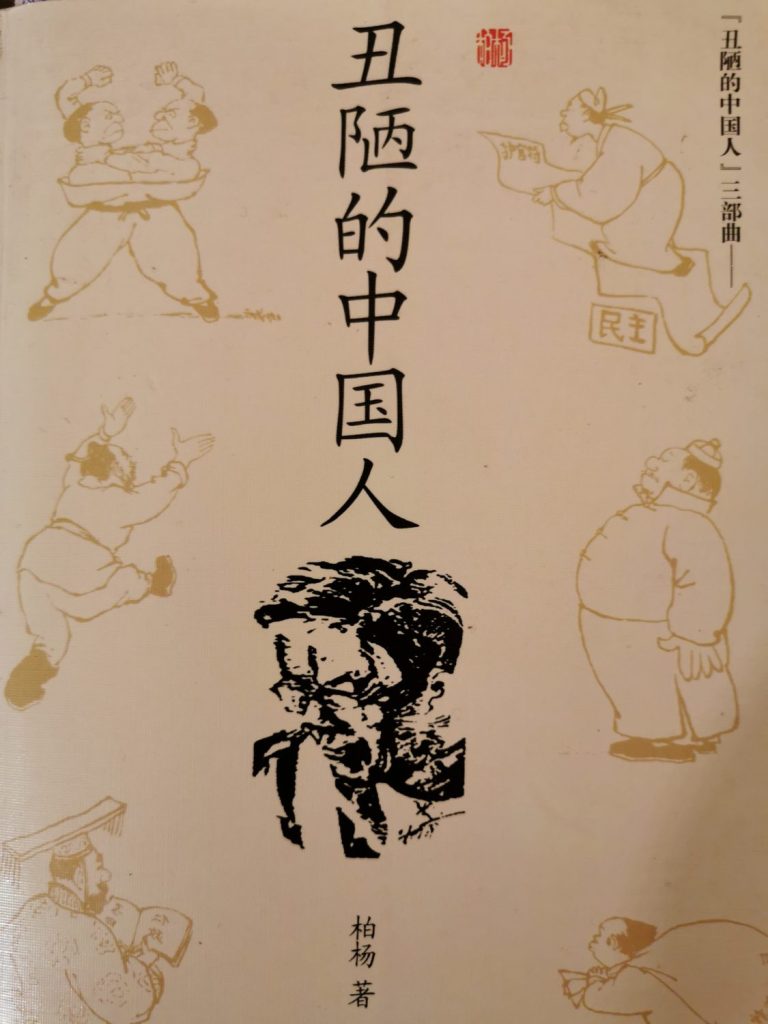 『丑陋的中国人』三部曲——
丑陋的中国人
护官符
民主
柏杨 著